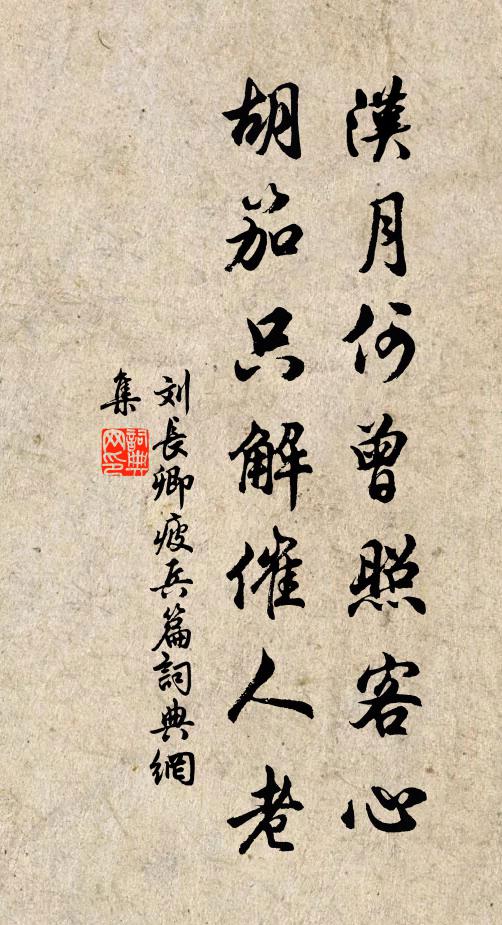 漢月何曾照客心
胡笳只解催人老
刘長卿疲兵篇詞典網
集
詞典
网印